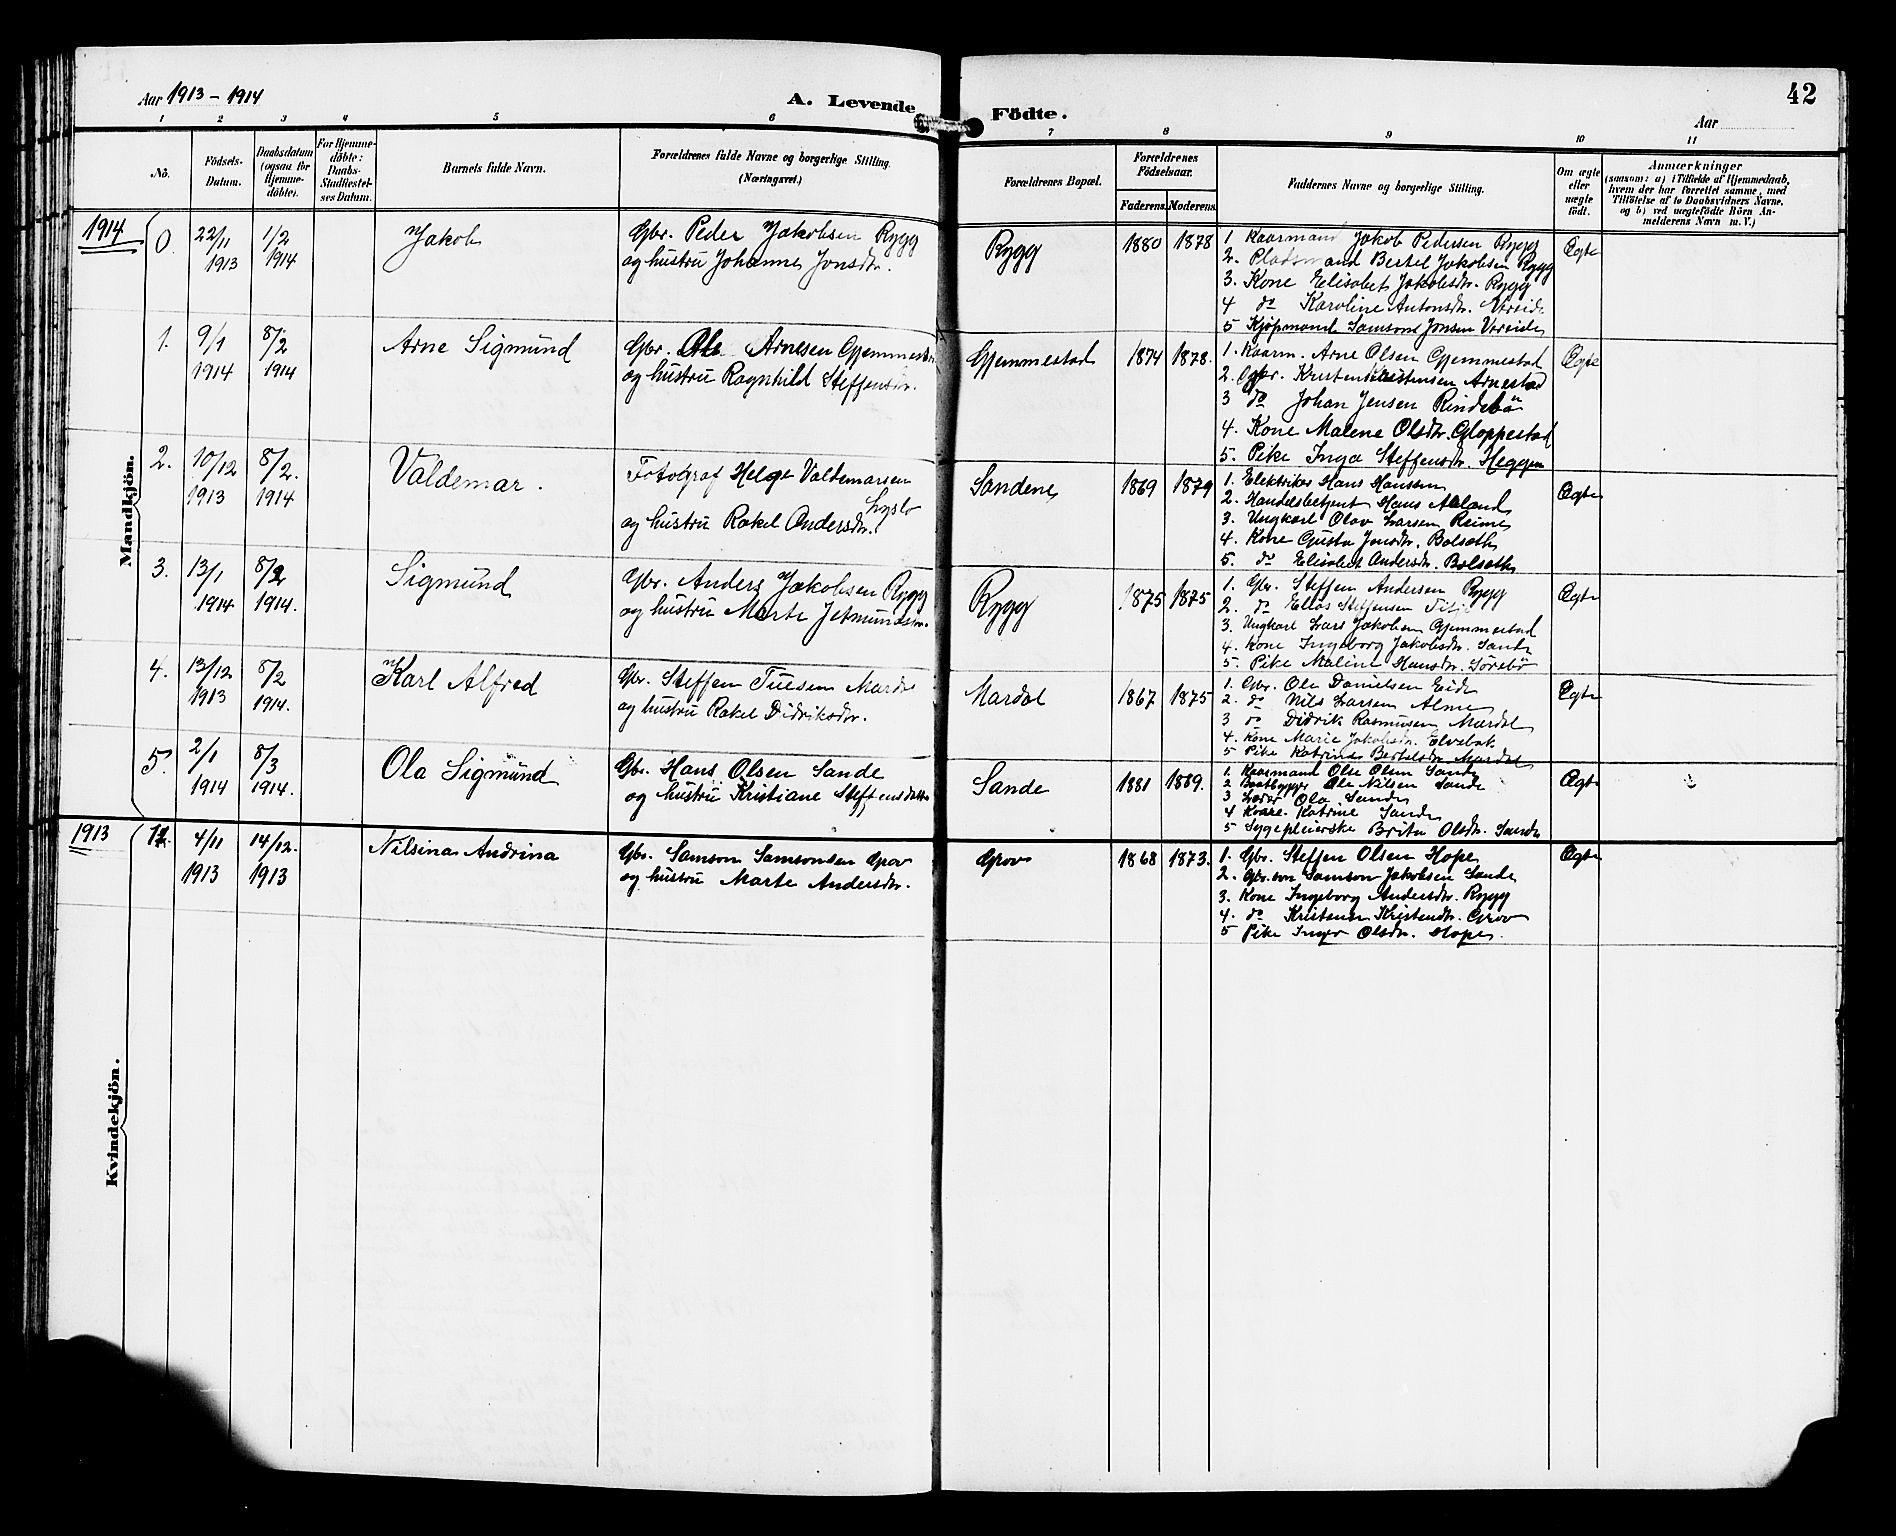 Aar 1913 - 1914
A. Levende
Födte.
42
Aar
1 2 3 4 5 6 7 8 9 10 11
No.
Födsels-
Datum.
Daabsdatum
(ogsaa for
Hjemme-
döbte).
For Hjemme-
döbte:
Daabs-
Stadfæstel-
ses Datum.
Barnets fulde Navn.
Forældrenes fulde Navne og borgerlige Stilling.
(Næringsvei.)
Forældrenes Bopæl.
Forældrenes
Födselsaar.
Faderens.
Moderens.
Faddernes Navne og borgerlige Stilling.
Om ægte
eller
uægte
født.
Anmærkninger
(saasom: a) i Tilfælde af Hjemmedaab,
hvem der har forrettet samme, med
Tilföielse af to Daabsvidners Navne,
og b) ved uægtefödte Börn An-
melderens Navn m. V.)
Mandkjön.
1914
0. 22/11 1913 1/2 1914 Jakob
Gbr. Peder Jakobsen Rygg
og hustru Johanne Jonsdtr.
Rygg 1880 1878
1. Kaarmand Jakob Pedersen Rygg
2. Pladsmand Bertel Jakobsen Rygg
3. Kone Elisabet Jakobsdtr. Rygg
4 do Karoline Antonsdtr. Vereide
5 Kjöpmand Samson Jonsen Vereide
Ægte
1. 9/1 1914 8/2 1914 Arne Sigmund
Gbr. Ole Arnesen Gjemmestad
og hustru Ragnhild Steffensdtr.
Gjemmestad 1874 1878.
1. Kaarm. Arne Olsen Gjemmestad
2. Gbr. Kristen Kristensen Arnestad
3 do Johan Jensen Rindebö
4. Kone Malene Olsdtr. Gloppestad
5. Pike Inga Steffensdtr. Heggen
Ægte
2. 10/12 1913 8/2. 1914 Valdemar.
Fotograf Helge Valdemarsen
Lyslo
og hustru Rakel Andersdtr.
Sandene 1869 1879
1. Elektriker Hans Hanssen
2. Handelsbetjent Hans Aaland
3. Ungkarl Olav Larsen Reime
4. Kone Gusta Jonsdtr. Bolsæth
5. do Elisabet Andersdtr. Bolsæth
Ægte
3. 13/1 1914 8/2 1914. Sigmund
Gbr. Anders Jakobsen Rygg
og hustru Marte Jetmundsdtr.
Rygg 1875 1875
1. Gbr. Steffen Andersen Rygg
2. do Elias Steffensen
3. Ungkarl Lars Jakobsen Gjemmestad
4. Kone Ingeborg Jakobsdtr. Sande
5. Pike Maline Hansdtr. Sörebö
Ægte
4. 13/12 1913 8/2 1914. Karl Alfred
Gbr. Steffen Tuesen Mardal
og hustru Rakel Didriksdtr.
Mardal 1867 1875
1. Gbr. Ole Danielsen Eide
2. do Nils Larsen Alme
3 do Didrik Rasmusen Mardal
4. Kone Marie Jakobsdtr. Elvebak
5 Pike Katrine Bertelsdtr. Mardal
Ægte
5. 2/1 1914 8/3 1914. Ola Sigmund
Gbr. Hans Olsen Sande
og hustru Kristiane Steffensdatter
Sande 1881 1889.
1. Kaarmand Ole Olsen Sande
2 Baatbygger Ole Nilsen Sande
3 Lærer Ola Sande
4 Kaare. Katrine Sande
5 Sygepleierske Brita Olsdtr. Sande
Ægte
Kvindekjön.
1913
4/11 1913 14/12. 1913 Nilsina Andrina
Gbr. Samson Samsonsen Grov
og hustru Marte Andersdtr.
Grov 1868 1873.
1. Gbr. Steffen Olsen Hope
2. Gbr.søn Samson Jakobsen Sande
3. Kone Ingeborg Andersdtr. Rygg
4. do Kristense Kristendtr. Grov
5 Pike Inger Olsdtr. Hope.
Ægte